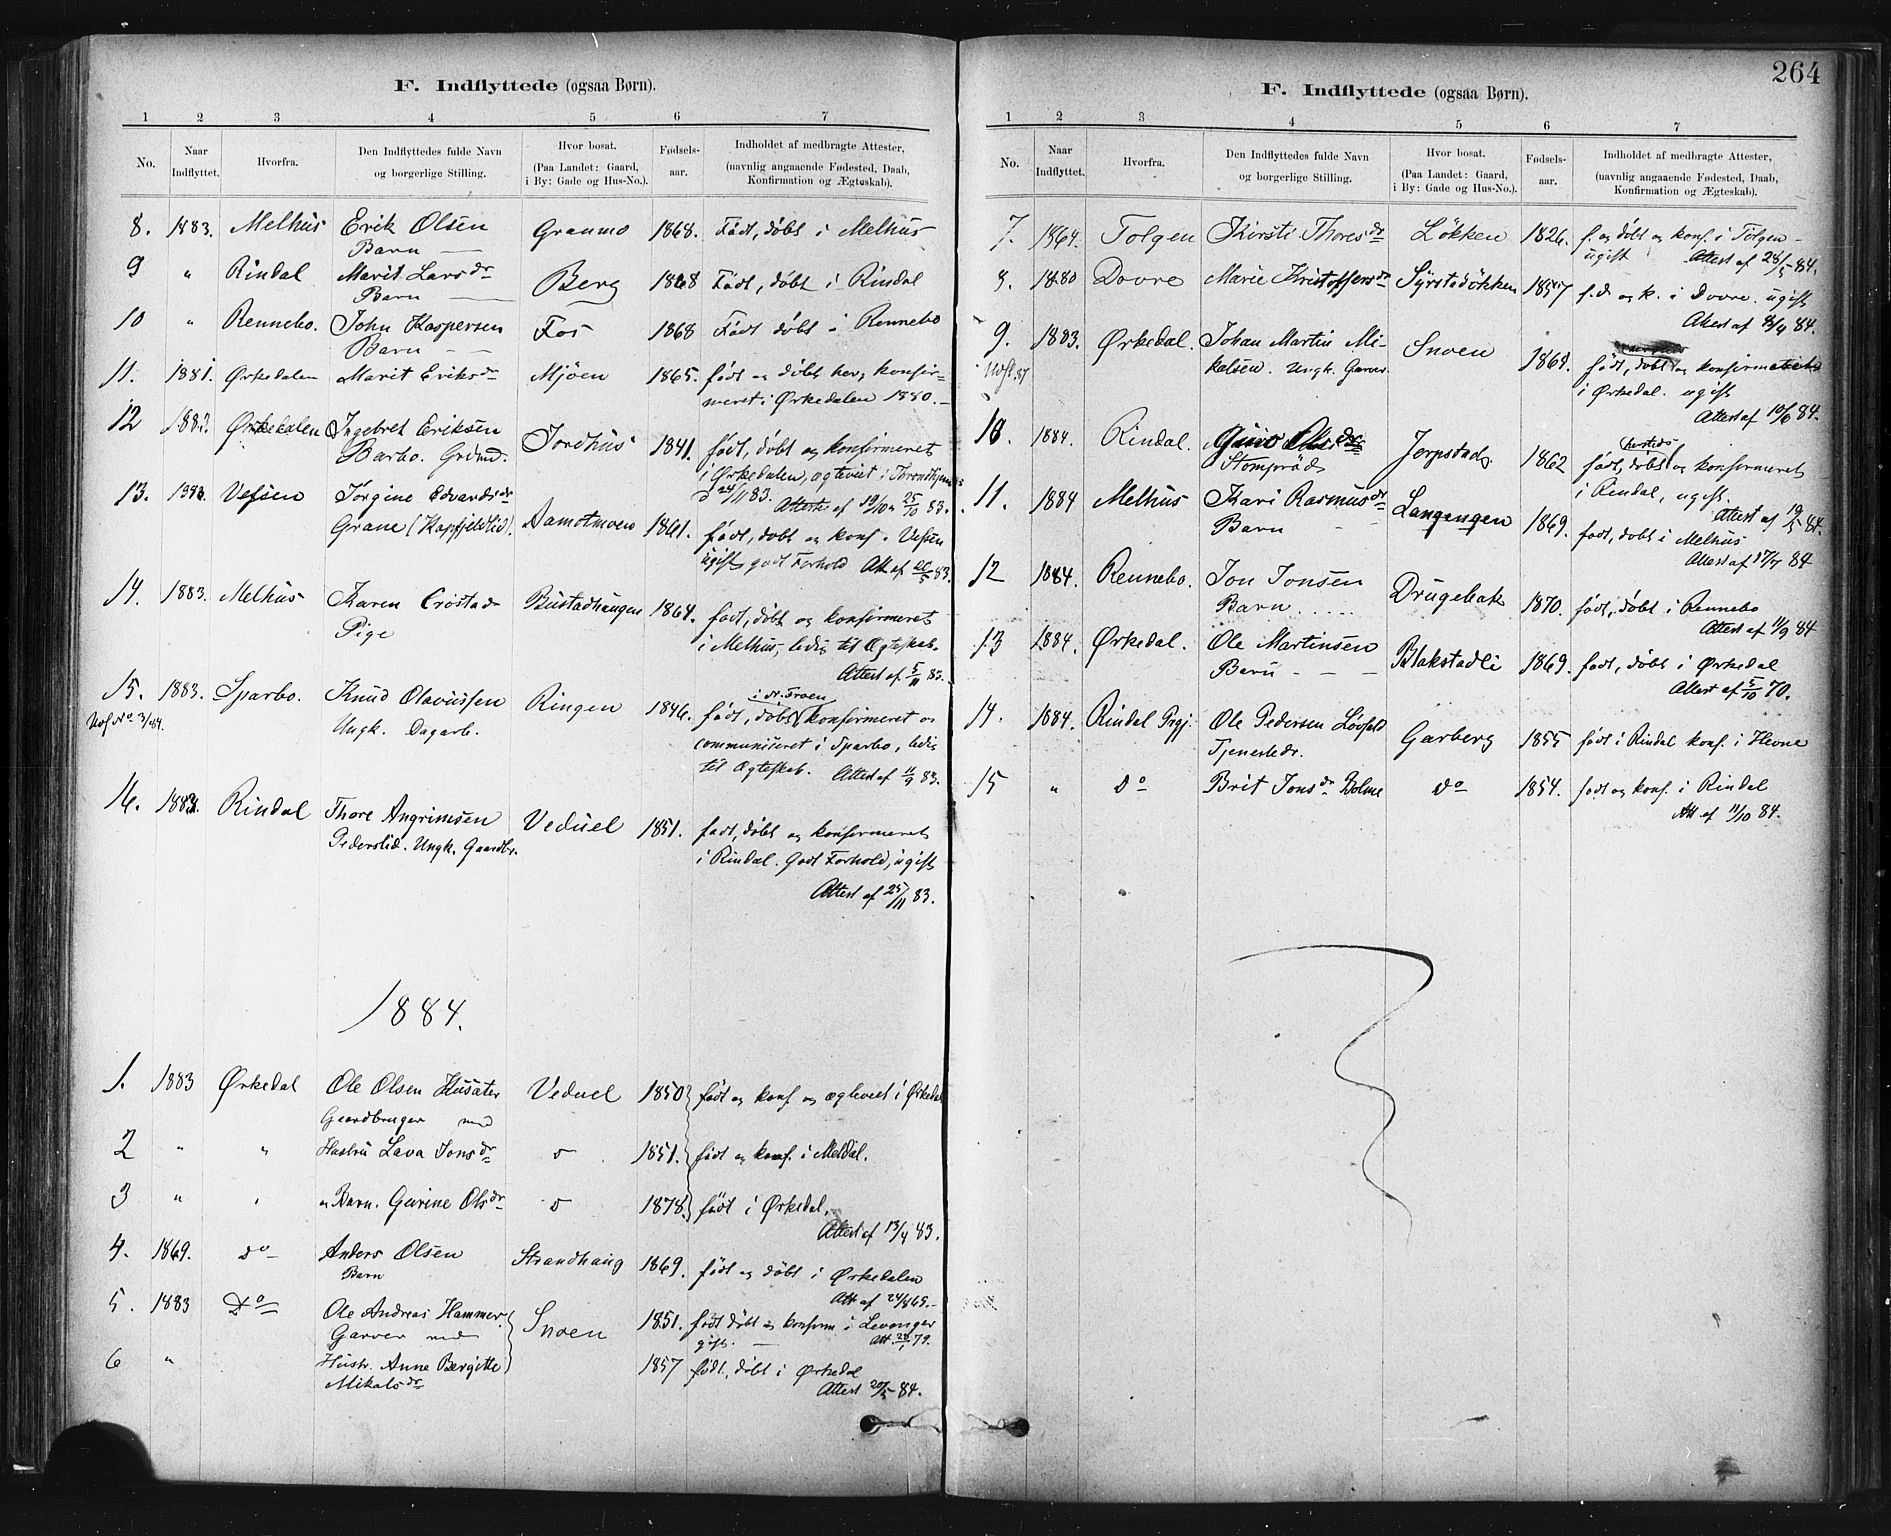 F. Indflyttede (ogsaa Børn).
1 2 3 4 5 6 7
No. Naar Indflyttet. Hvorfra. Den Indflyttedes fulde Navn og borgerlige Stilling. Hvor bosat. (Paa Landet: Gaard, i By: Gade og Hus-No.). Fødsels-aar. Indholdet af medbragte Attester, (navnlig angaaende Fødested, Daab, Konfirmation og Ægteskab).
8. 1883. Melhus Erik Olsen Granmo 1868. Født, døbt i Melhus
Barn
9 " Rindal Marit Larsdr Berg 1868 Født, døbt i Rindal
Barn
10 " Rennebo. John Kaspersen Fos 1868 Født døbt i Rennebo
Barn
11. 1881. Ørkedalen Marit Eriksdr Mjöen 1865. født og døbt her, konfir-
meret i Ørkedalen 1880.
12 1883. Ørkedalen Ingebret Eriksen Jordhus 1841. født, døbt og konfirmeret
Barbo. Grdmd. i Ørkedalen, ogteviet i Throndhjem
d 24/11 83. Atteste af 19/10 & 25/10 83.
13. Vefsen Jørgine Edvardsdr Aamotmoen 1861. født, døbt og konf. i Vefsen
Grane (Kapfjeldlid). ugift, godt Forhold Att. af 20/5 83.
14. 1883. Melhus Karen Crostad Bustadhaugen 1864. født, døbt og konfirmeret
Pige i Melhus, ledig til Ægteskab.
Attest af 5/11 83.
15. 1883. Sparbo. Knud Olavussen Ringen 1846. født, døbt i N. Froen konfirmeret og
Udf No 3/84. Ungk. Dagarb. communiceret i Sparbo, ledig
til Ægteskab. Attest af 11/9 83.
16. 1883. Rindal Thore Angrimsen Veduel 1851. født, døbt og konfirmeret
Pederslid. Ungk. Gaardbr. i Rindal. Godt Forhold, ugift
Attest af 25/11 83.
1884.
1. 1883 Ørkedal Ole Olsen Husæter Veduel 1850 født og konf og ægteviet i Ørkedal
Gaardbruger med
2 " " Hustru Lava Jonsdr 1851. født og konf. i Meldal.
3 " " Barn. Gurine Olsdr 1878. født i Ørkedal.
Attest af 13/4 83.
4. 1869. do Anders Olsen Strandhaug 1869. født og døbt i Ørkedalen
Barn Att af 24/8 69.
5. 1883 Do Ole Andreas Hammer Snoen 1851. født døbt og konfirm i Levanger
Garver med gift. Att. 79.
6 " Hustr. Anne Bergitte 1857 født, døbt i Ørkedal
Mikalsdr Attest 20/5 84.
264
F. Indflyttede (ogsaa Børn).
1 2 3 4 5 6 7
No. Naar Indflyttet. Hvorfra. Den Indflyttedes fulde Navn og borgerlige Stilling. Hvor bosat. (Paa Landet: Gaard, i By: Gade og Hus-No.). Fødsels-aar. Indholdet af medbragte Attester, (navnlig angaaende Fødested, Daab, Konfirmation og Ægteskab).
7. 1864. Tolgen Kirsti Thoresdr Løkken 1826. f. og døbt og konf. i Tolgen
ugift Attest af 28/5 84.
8. 1880 Dovre Marie Kristoffersdr Syrstadökken 1857 f. d. og k. i Dovre. ugift
Attest af 8/4 84.
9. 1883. Ørkedal. Johan Martin Mi- Snoen 1869. født, døbt og konfirm
Udf. 87 kelsen. Ungk. Garver i Ørkedal. ugift
Attest af 10/6 84.
10. 1884. Rindal. Guro Olsdr Jerpstad 1862 født, døbt og konfirmeret
Stomprød i Rindal, ugift.
Attest af 19/5 84.
11. 1884 Melhus Kari Rasmusdr Langengen 1869. født, døbt i Melhus
Barn Attest af 17/7 84
12 1884. Rennebo. Jon Jonsen Drugebak 1870. født, døbt i Rennebo
Barn Attest af 11/9 84
13 1884. Ørkedal. Ole Martinsen Blokstadli 1869. født, døbt i Ørkedal
Barn Attest af 5/10 70.
14. 1884. Rindal Prgj. Ole Pedersen Løvfald Garberg 1855 født i Rindal konf. i Hevne
Tjenestedr.
15 " do Brit Jonsdr Bolme do 1854. født og konf. i Rindal
Att af 11/10 84.